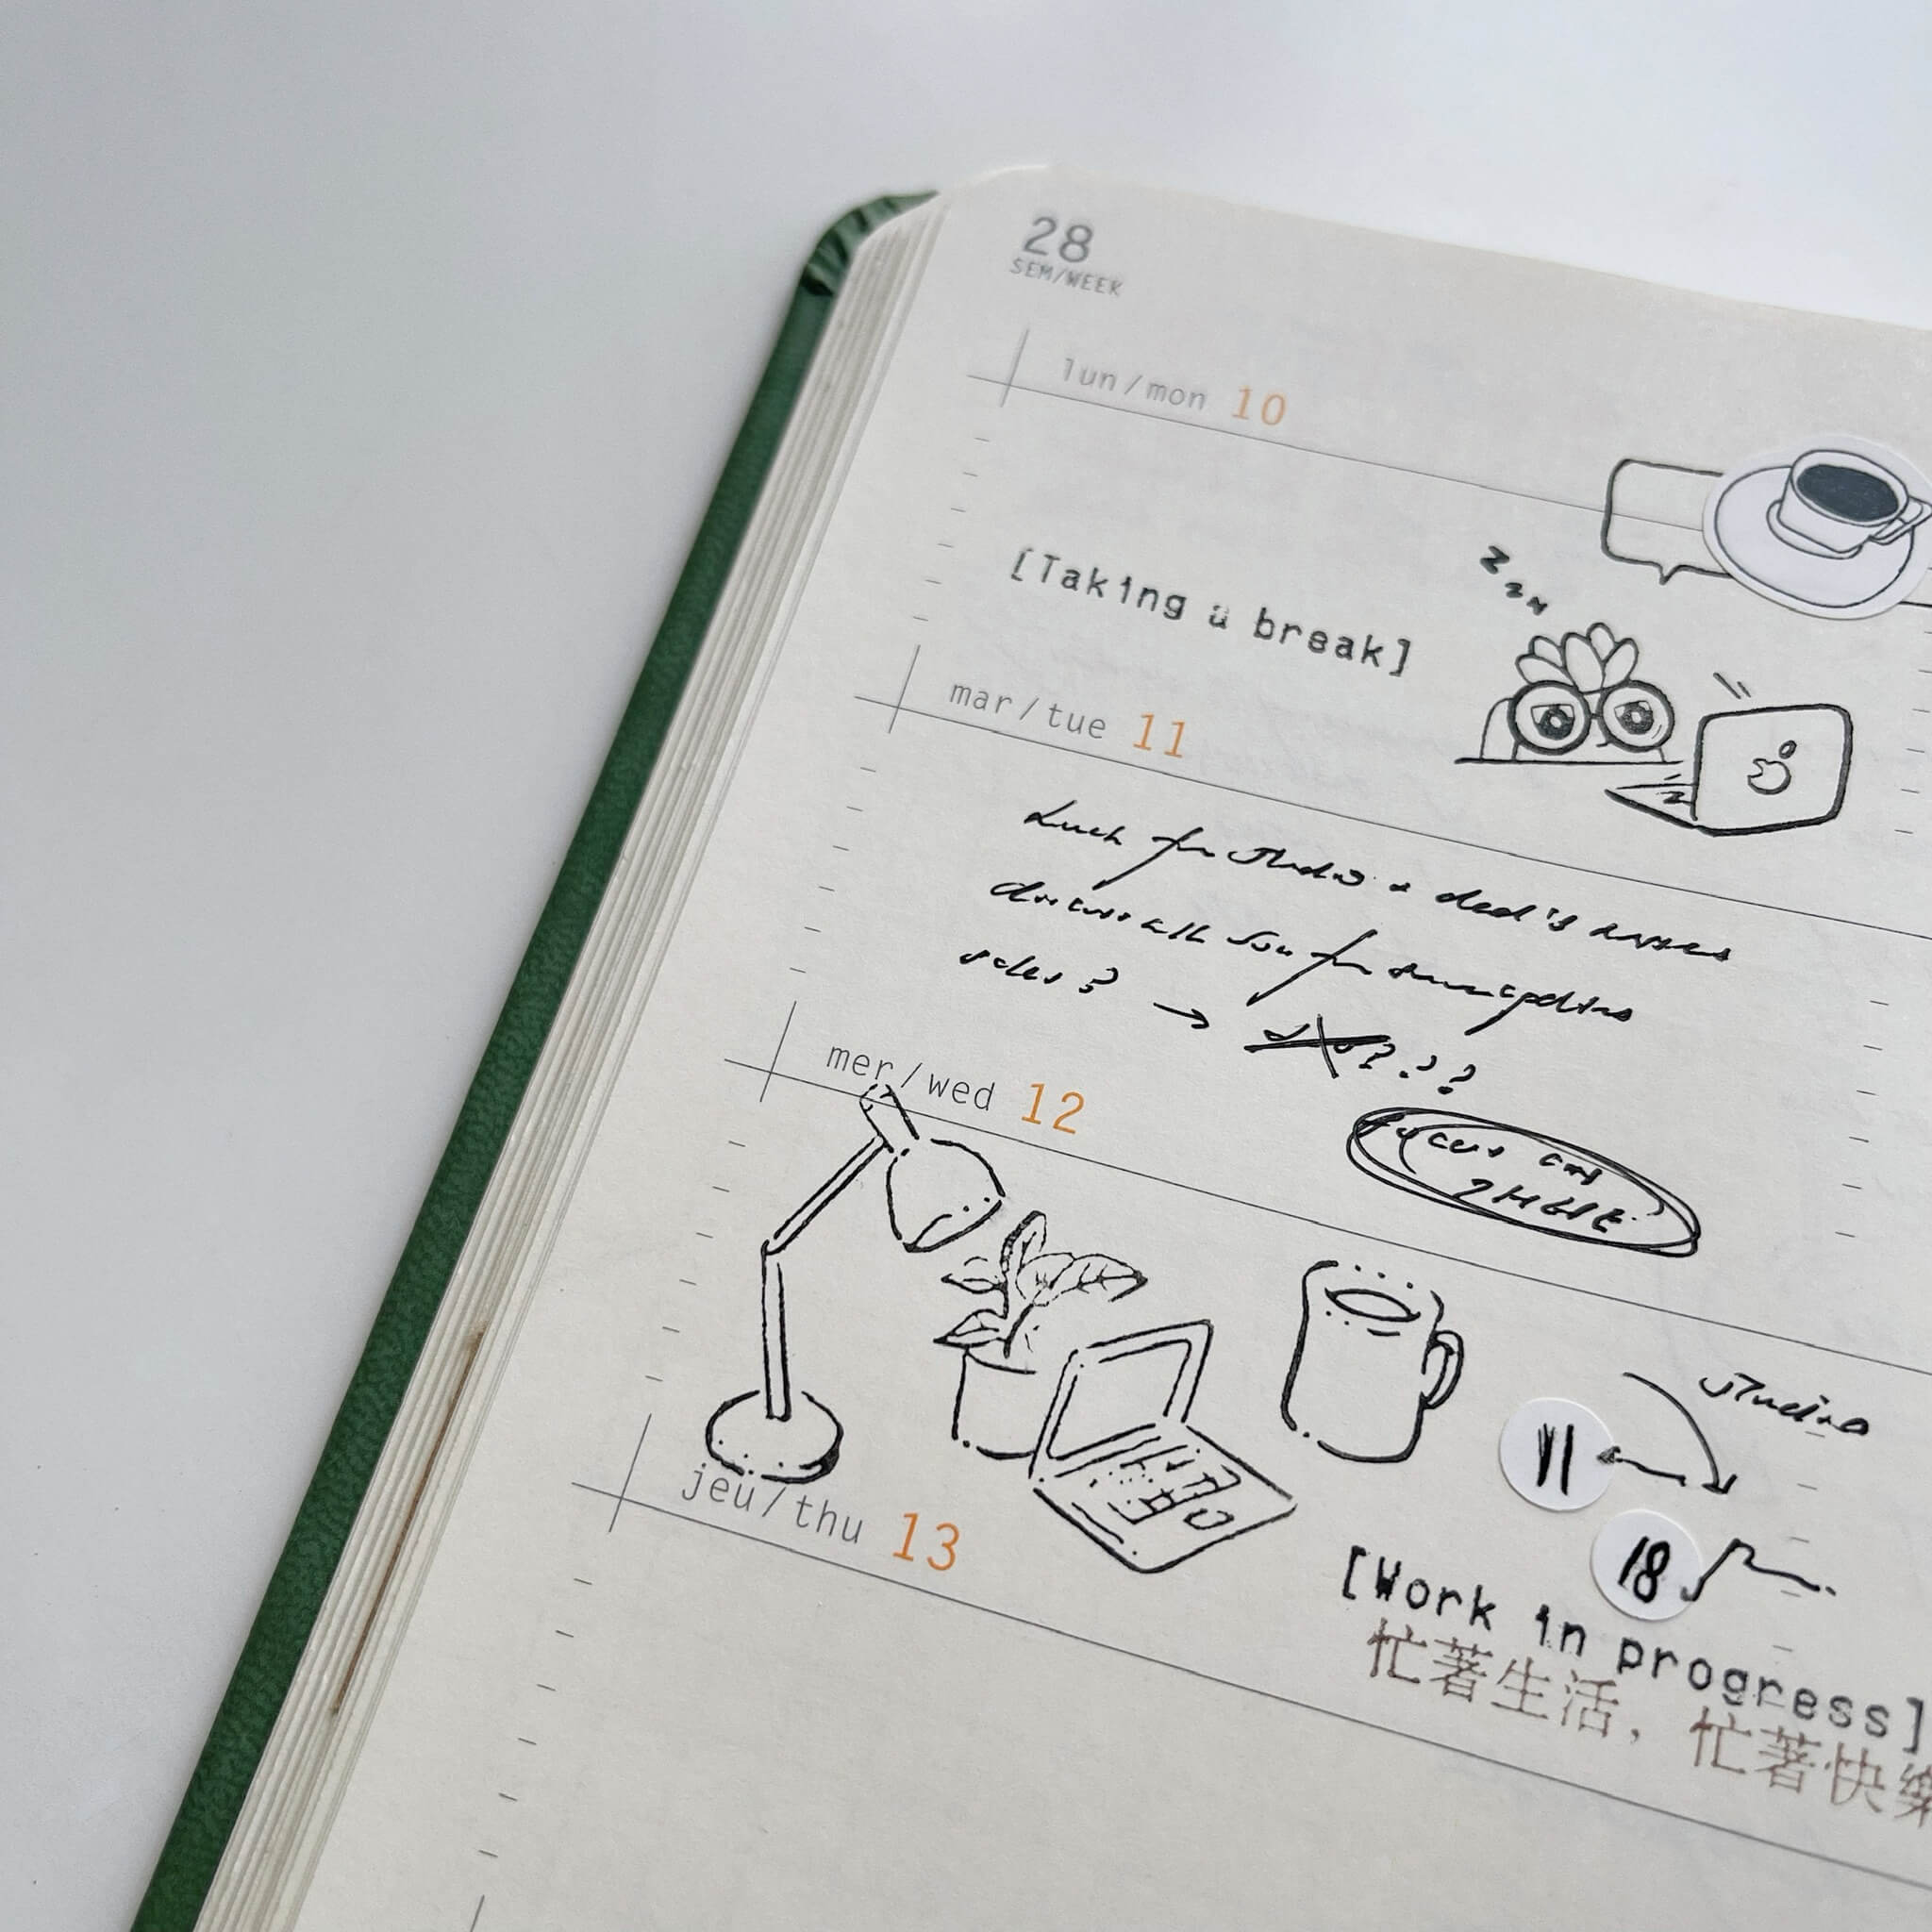 28
SEM/WEEK
lun/mon 10
zzz
[Taking a break]
mar/tue 11
for studio + dad's
for
sales? → ???
mer/wed 12
focus
studio
11
18
jeu/thu 13
[Work in progress]
忙著生活，忙著快樂